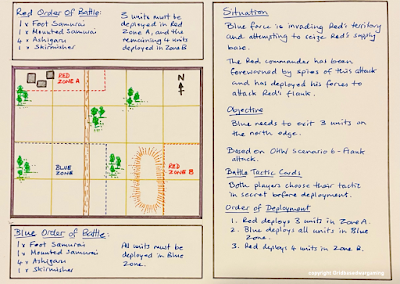 Red Order Of Battle:
1 x Foot Samurai
1 x Mounted Samurai
4 x Ashigaru
1 x Skirmisher
3 units must be
deployed in Red
Zone A, and the
remaining 4 units
deployed in Zone B
RED
ZONE A
N
BLUE
ZONE
RED
ZONE B
Blue Order of Battle:
1 x Foot Samurai
1 x Mounted Samurai
4 x Ashigaru
1 x Skirmisher
All units must be
deployed in Blue
Zone.
Situation
Blue force is invading Red's territory
and attempting to seize Red's supply
base.
The Red commander has been
forewarned by spies of this attack
and has deployed his forces to
attack Red's flank.
Objective
Blue needs to exit 3 units on
the north edge.
Based on OHW Scenario 6 - Flank
attack.
Battle Tactic Cards
Both players choose their tactic
in secret before deployment.
Order of Deployment
1. Red deploys 3 units in Zone A.
2. Blue deploys all units in Blue
Zone.
3. Red deploys 4 units in Zone B.